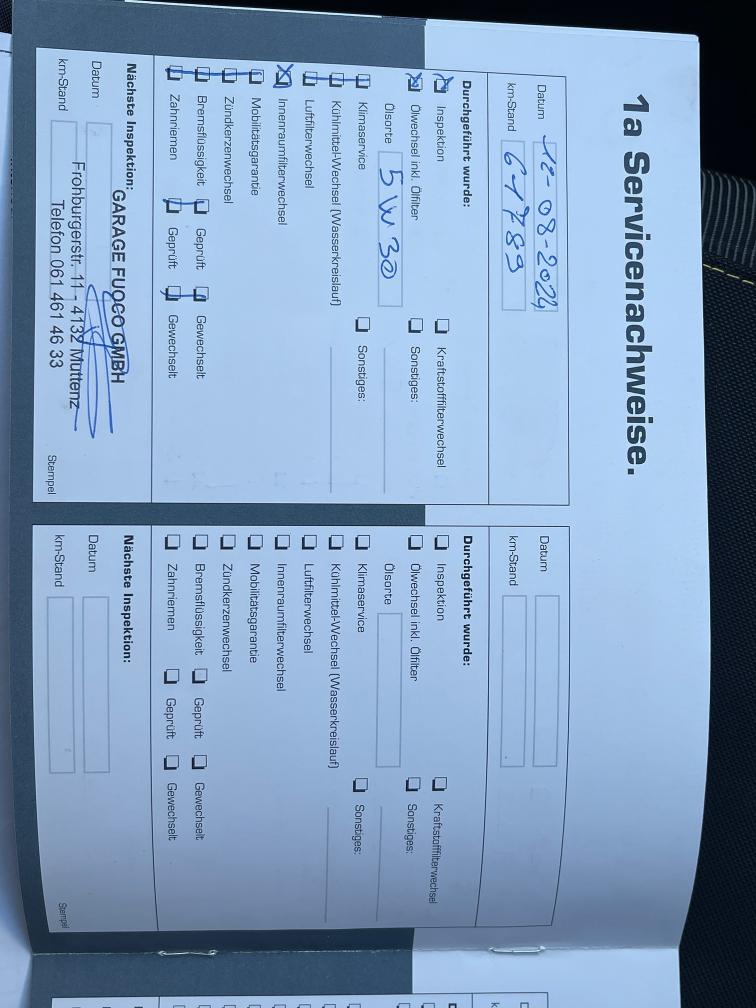 1a Servicenachweise.
Datum 12-08-2024
km-Stand 61789
Durchgeführt wurde:
Inspektion
Kraftstofffilterwechsel
Ölwechsel inkl. Ölfilter
Sonstiges:
Ölsorte 5W30
Klimaservice
Sonstiges:
Kühlmittel-Wechsel (Wasserkreislauf)
Luftfilterwechsel
Innenraumfilterwechsel
Mobilitätsgarantie
Zündkerzenwechsel
Bremsflüssigkeit Geprüft Gewechselt
Zahnriemen Geprüft Gewechselt
Nächste Inspektion:
Datum
km-Stand
GARAGE FUOCO GMBH
Frohburgerstr. 11 - 4132 Muttenz
Telefon 061 461 46 33
Stempel
Datum
km-Stand
Durchgeführt wurde:
Inspektion
Kraftstofffilterwechsel
Ölwechsel inkl. Ölfilter
Sonstiges:
Ölsorte
Klimaservice
Sonstiges:
Kühlmittel-Wechsel (Wasserkreislauf)
Luftfilterwechsel
Innenraumfilterwechsel
Mobilitätsgarantie
Zündkerzenwechsel
Bremsflüssigkeit Geprüft Gewechselt
Zahnriemen Geprüft Gewechselt
Nächste Inspektion:
Datum
km-Stand
Stempel